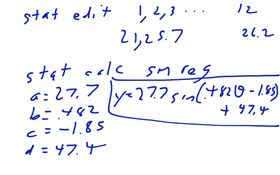 stat edit 1, 2, 3 ... 12
21, 25.7 26.2
stat calc sin reg
a = 27.7
b = .482
c = -1.85
d = 47.4
y = 27.7 sin(.482θ - 1.85)
+ 47.4